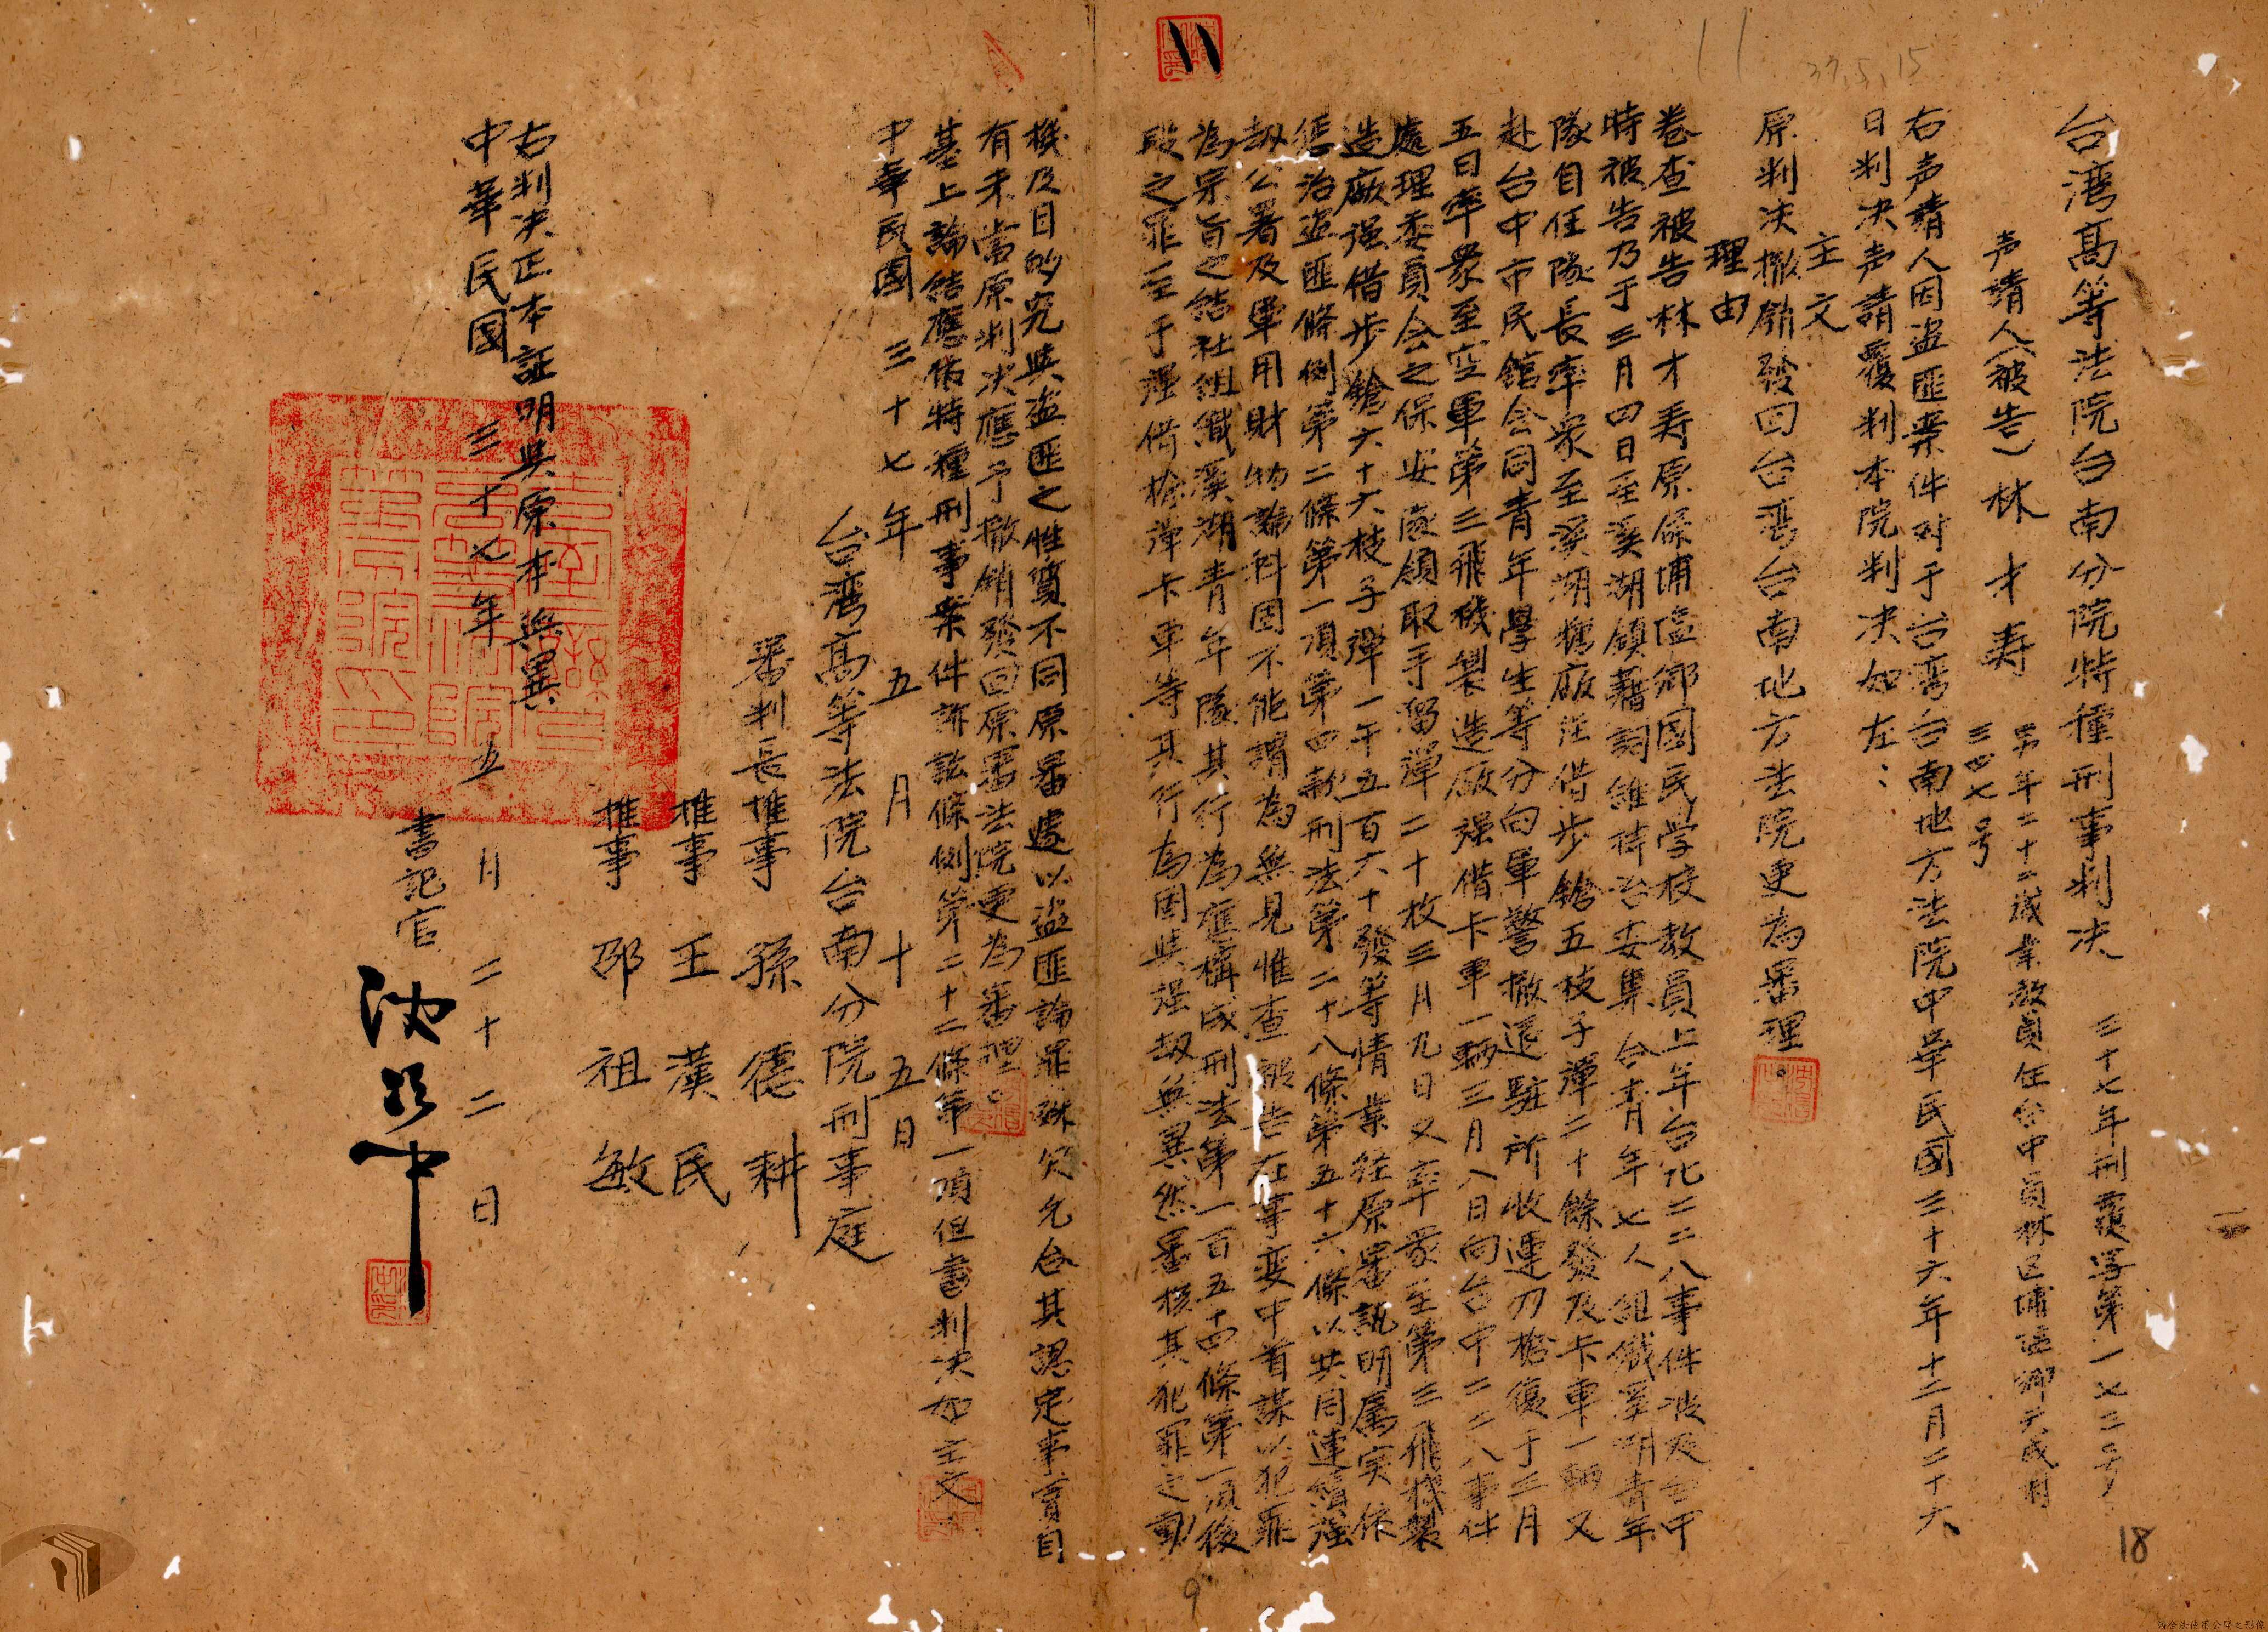 台湾高等法院台南分院特種刑事判决 三十七年刑覆字第一七三二号
声請人(被告)林才寿 男年二十二歲業教員住台中員林区埔塩鄉天盛村
三四七号
右声請人因盗匪案件对于台湾台南地方法院中華民國三十六年十二月二十六
日判决声請覆判本院判决如左:
主文
原判决撤銷發回台湾台南地方法院更為審理。
理由
卷查被告林才寿原係埔塩鄉國民学校教員上年台北二二八事件波及台中
時被告乃于三月四日至溪湖鎮藉詞維持治安集合青年七人組織溪湖青年
隊自任隊長率衆至溪湖糖廠迋借步鎗五枝子彈二十餘發及卡車一輛又
赴台中市民館会同青年學生等分向軍警撤退駐所收運刀槍復于三月
五日率衆至空軍第三飛機製造廠强借卡車一輛三月八日向台中二二八事件
處理委員会之保安隊領取手榴彈二十枚三月九日又率衆至第三飛機製
造廠强借步鎗六十六枝子彈一千五百六十發等情業経原審訊明属実係
惩治盗匪條例第二條第一項第四款刑法第二十八條第五十六條以共同連續强
刼公署及軍用財物論科固不能謂為無見惟查被告在事变中首謀以犯罪
為宗旨之結社組織溪湖青年隊其行為應構成刑法第一百五十四條第一項後
段之罪至于强借槍彈卡車等其行為固與强刼無異然審核其犯罪之動
機及目的究與盗匪之性質不同原審遽以盗匪論罪殊欠允合其認定事實自
有未當原判决應予撤銷發回原審法院更為審理。
基上論結應依特種刑事案件訴訟條例第二十二條第一項但書判决如主文
中華民國三十七年五月十五日
台湾高等法院台南分院刑事庭
審判長推事 孫德耕
推事 王漢民
推事 邵祖敏
右判决正本証明與原本無異
中華民國三十七年五月二十二日
書記官 沈
37.5.15
11
18
9